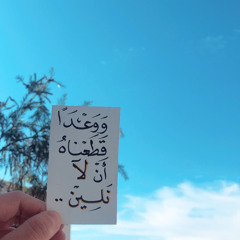 وَوَعْدًا
قَطَعْنَاهُ
أَنْ لَا
نَلِينَ..